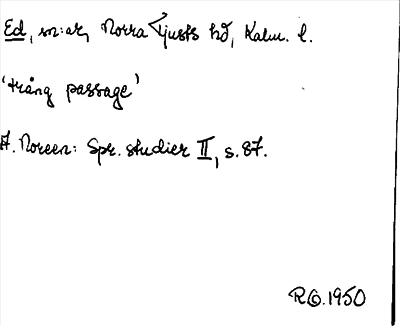 Ed, sn:ar, Norra Tjusts hd, Kalm. l.
'trång passage'
A. Noreen: Spr. studier II, s. 87.
R.G. 1950